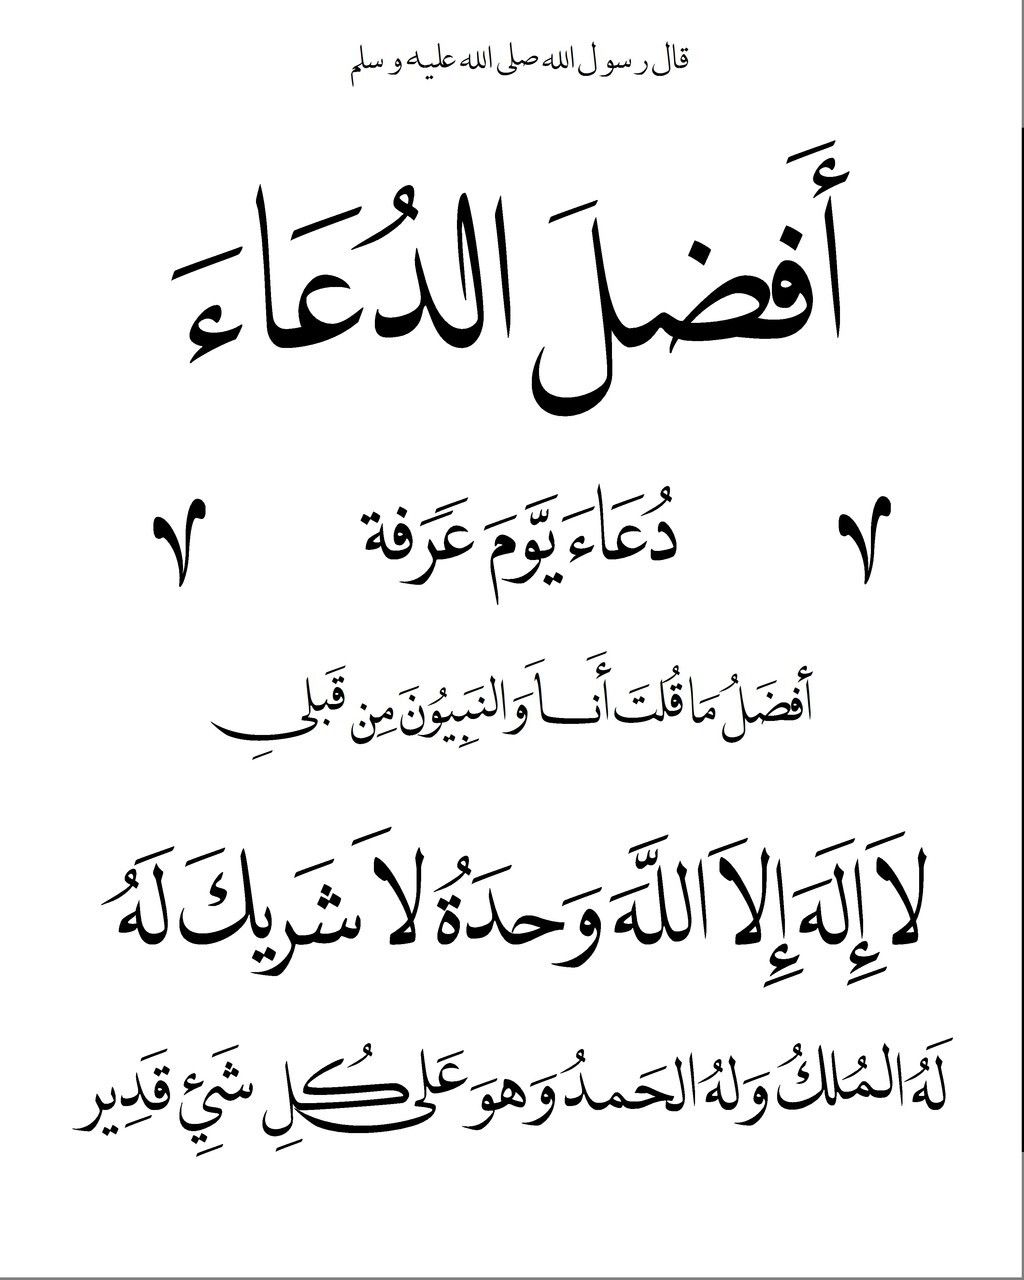 قال رسول الله صلى الله عليه وسلم
أَفضلَ الدُعَاءَ
دُعَاءَ يَّوّمَ عَرًفة
أفضَلُ مَا قُلتَ أَنَــاَ وَالنَبِيُونَ مِن قَبلىِ
لاَ إِلَهَ إِلاَ اللَّهَ وَحدَةُ لاَ شَريكَ لَهُ
لَهُ المُلكُ وَلهُ الحَمدُ وَهوَ عَلى كُلِ شَيِئٍ قَدِير